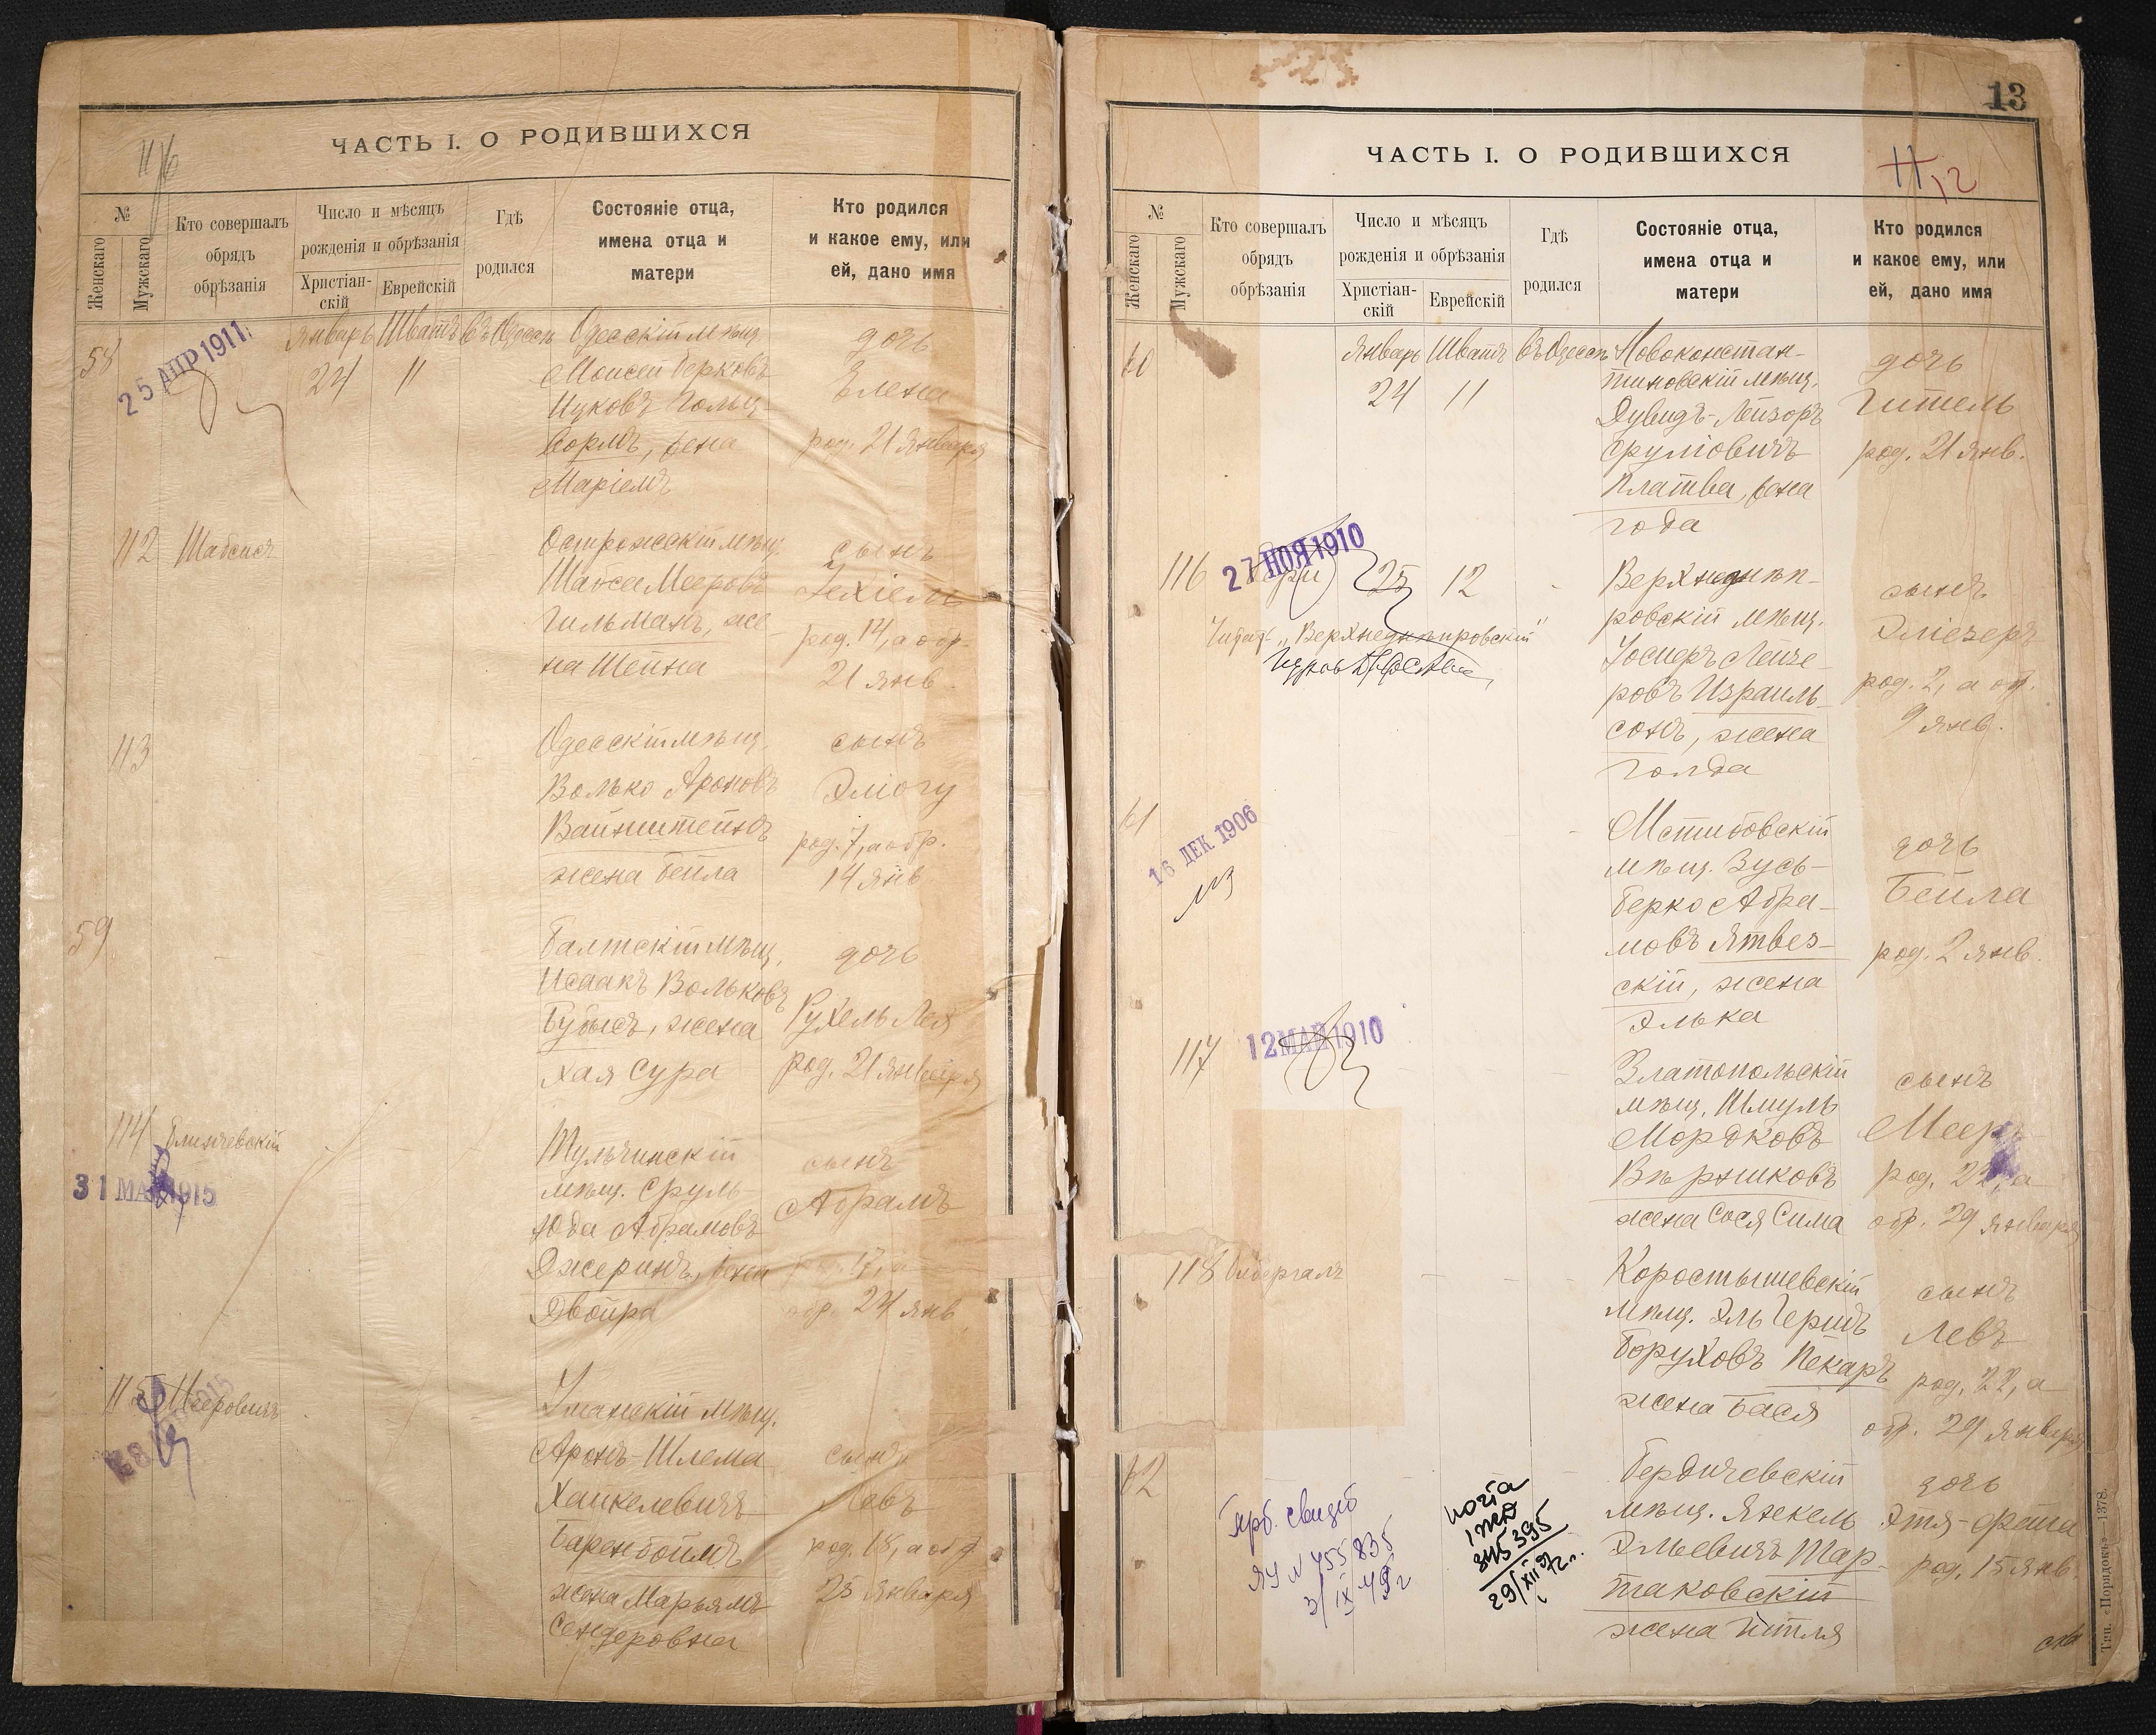 ЧАСТЬ I. О РОДИВШИХСЯ
№
Женскаго
Мужскаго
Кто совершалъ
обрядъ
обрѣзанія
Число и мѣсяцъ
рожденія и обрѣзанія
Христіан-
скій
Еврейскій
Гдѣ
родился
Состояніе отца,
имена отца и
матери
Кто родился
и какое ему, или
ей, дано имя
58
25 АПР 1911
Январь Шватъ въ Одессѣ
24 11
Одесскій мѣщ.
Моисей Берковъ
Ицковъ Гольц-
вормъ, жена
Маріемъ
дочь
Елена
род. 21 Января
112 Шабсисъ
Острожскій мѣщ.
Шахсе Мееровъ
Гильманъ, же-
на Шейна
сынъ
Іехіель
род. 14, а обр.
21 янв.
113
Одесскій мѣщ.
Волько Ароновъ
Вайнштейнъ
жена Бейла
сынъ
Эліогу
род. 7, а обр.
14 янв.
59
Балтскій мѣщ.
Исаакъ Вольковъ
жена
Хая Сура
дочь
Рухель Лея
род. 21 Января
114
31 МАЯ 1915
Тульчинскій
мѣщ. Сруль
Юда Абрамовъ
Джеринъ, жена
Двойра
сынъ
Абрамъ
род. 17, а
обр. 24 янв.
115 Мееровичъ
Уманскій мѣщ.
Аронъ-Шлема
Хаикелевичъ
Баренбоймъ
жена Марьямъ
Сендеровна
сынъ
Левъ
род. 18, а обр.
25 Января
13
ЧАСТЬ I. О РОДИВШИХСЯ
11
12
№
Женскаго
Мужскаго
Кто совершалъ
обрядъ
обрѣзанія
Число и мѣсяцъ
рожденія и обрѣзанія
Христіан-
скій
Еврейскій
Гдѣ
родился
Состояніе отца,
имена отца и
матери
Кто родился
и какое ему, или
ей, дано имя
60
Январь Шватъ въ Одессѣ
24 11
Новоконстан-
тиновскій мѣщ.
Дувидъ-Лейзоръ
Сруліовичъ
Платва, жена
Года
дочь
Гитель
род. 21 янв.
116
27 НОЯ 1910
25 12
"Верхнеднѣпровскій"
Верхнеднѣп-
ровскій мѣщ.
Іосперъ Лейзе-
ровъ Израиль-
сонъ, жена
Голда
сынъ
Эліезеръ
род. 2, а обр.
9 янв.
61
16 ДЕК 1906
Мстибовскій
мѣщ. Зусь-
Берко Абра-
мовъ Ятвез-
скій, жена
Элька
дочь
Бейла
род. 2 янв.
117
12 МАЙ 1910
Златопольскій
мѣщ. Шмуль
Мордковъ
Вѣршковъ
жена Сося Сима
сынъ
Мееръ
род. 22, а
обр. 29 января
118
Коростышевскій
мѣщ. Эль Гершъ
Боруховъ Пекаръ
жена Бася
сынъ
Левъ
род. 22, а
обр. 29 Января
62
ЯУ N 455835
3/IX 49г
345395
29/XII 972г.
Бердичевскій
мѣщ. Янкель
Эльевичъ Тар-
таковскій
жена Итля
дочь
Этя-Фрама
род. 15 янв.
Тип. «Порядокъ»—1378.